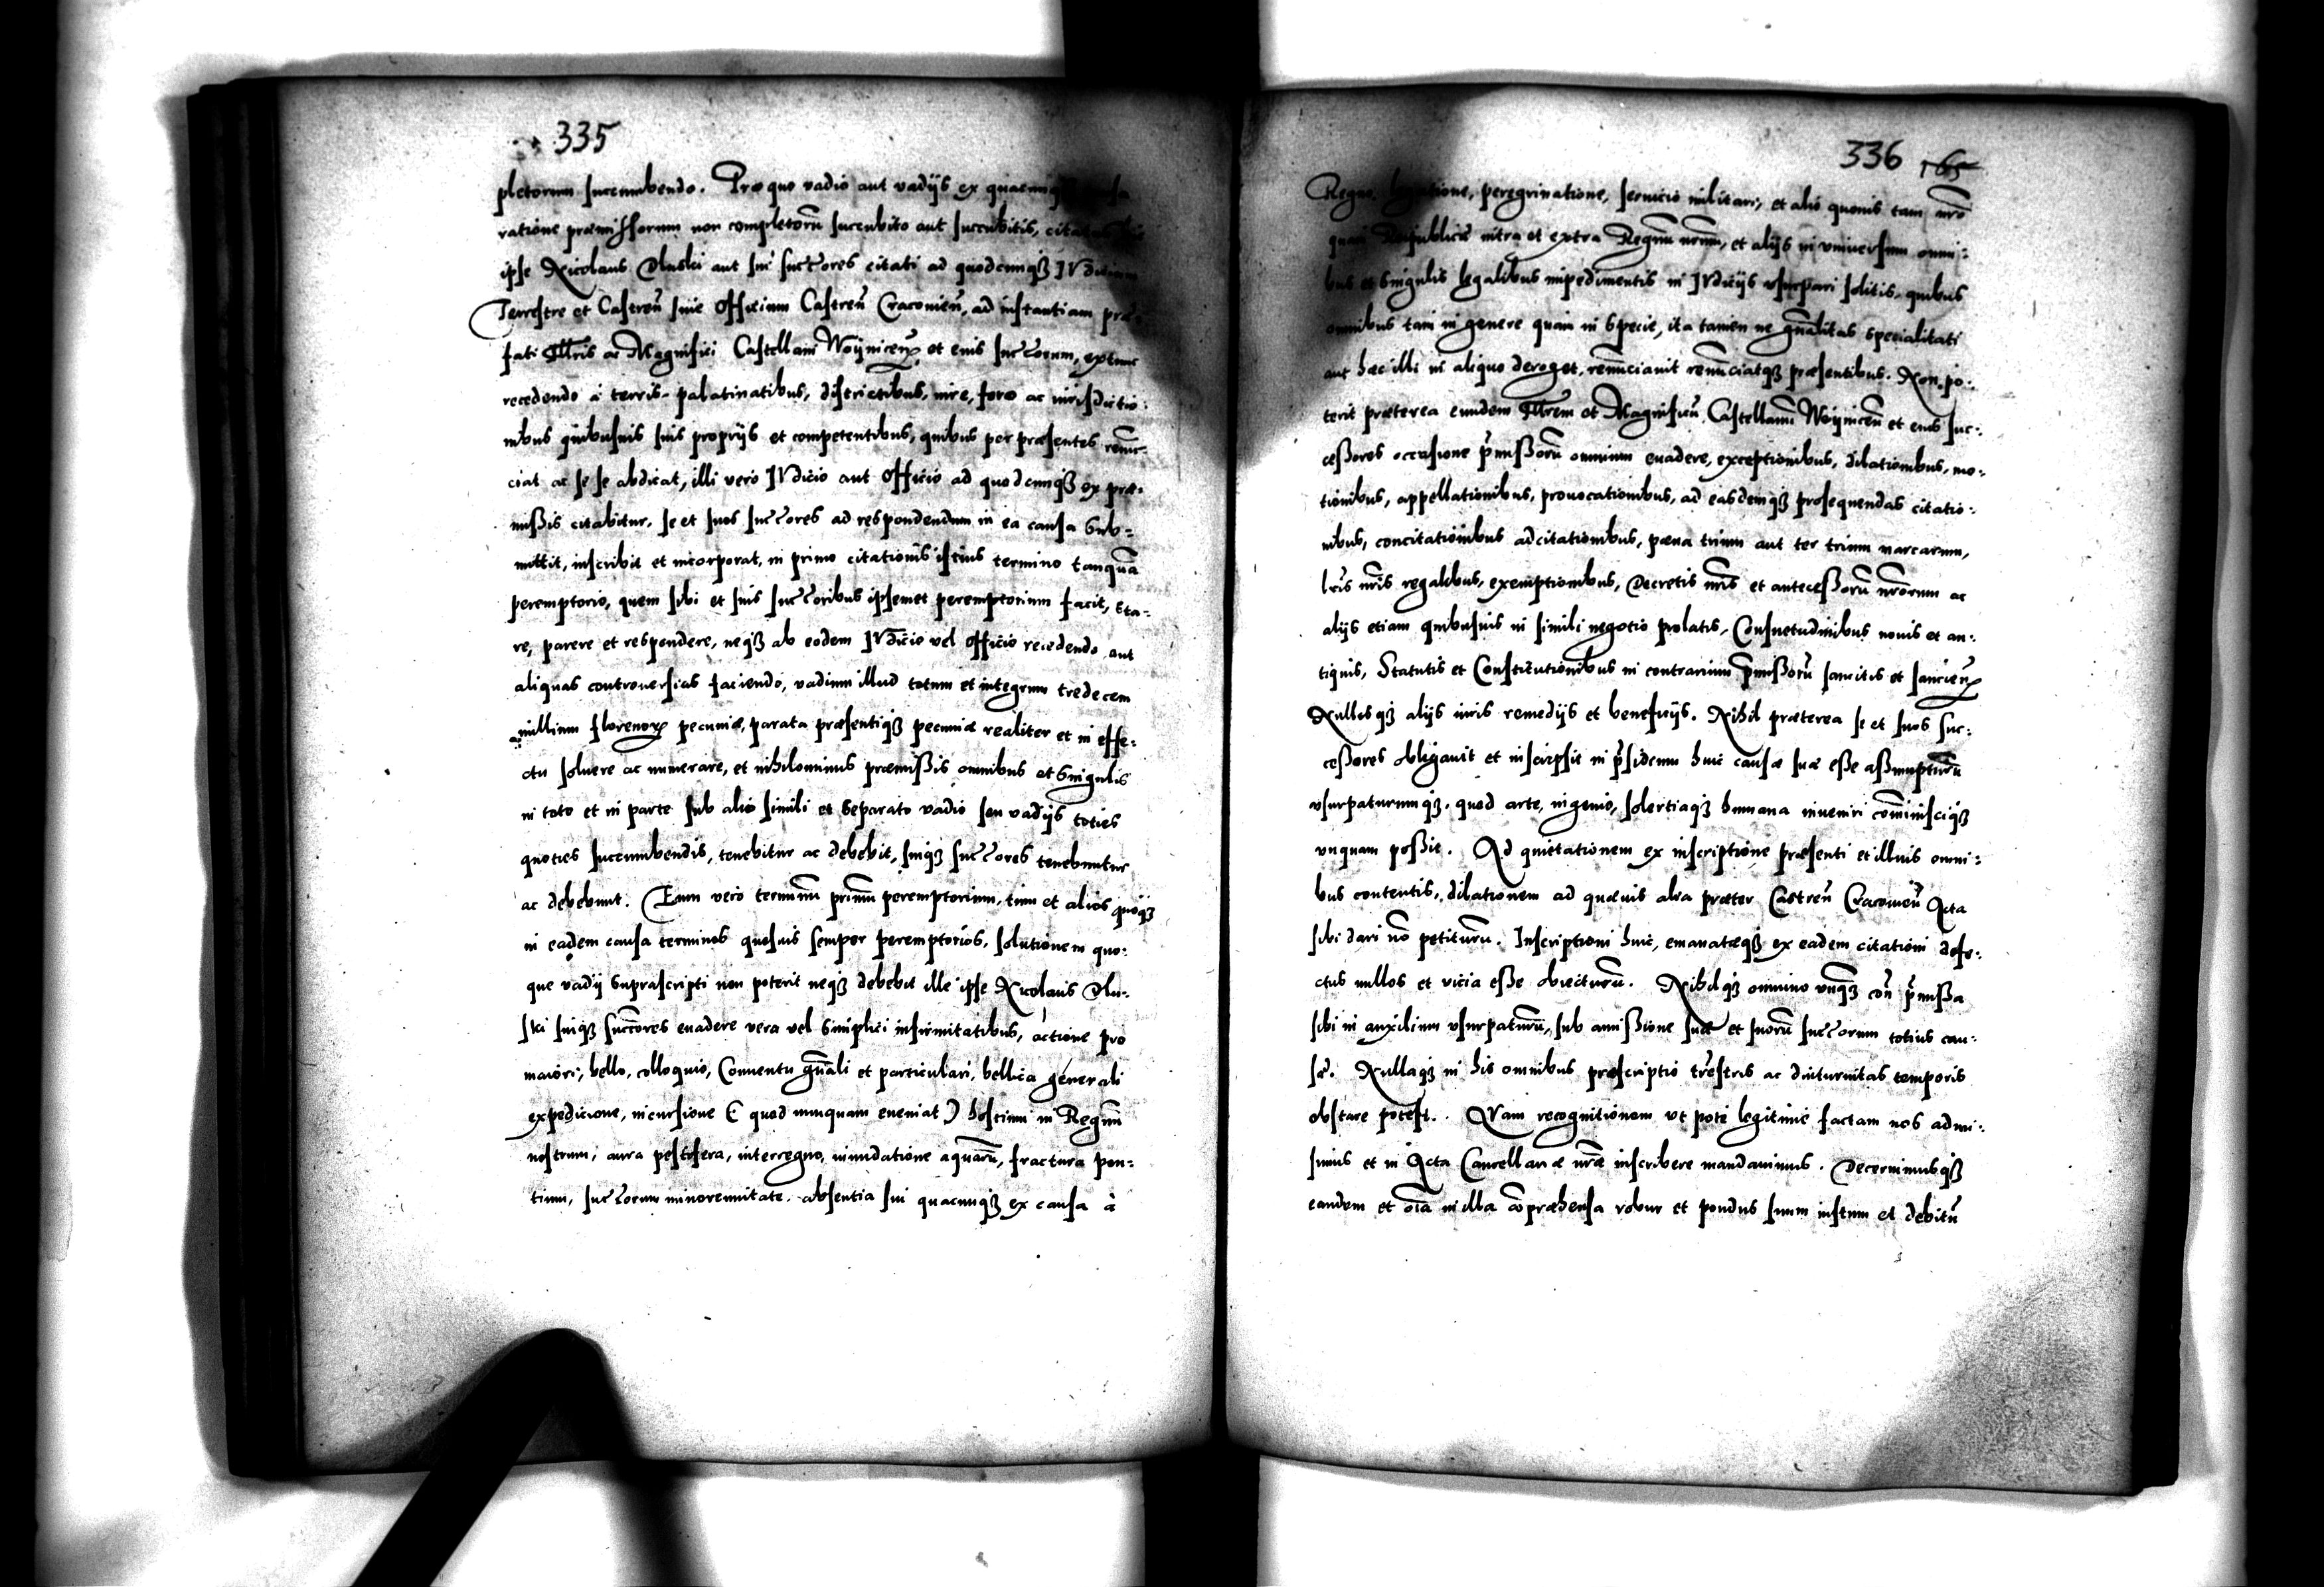 335
pletorum succumbendo. Pro quo vadio aut vadijs ex quacumq
ratione præmissorum non completorũ succubito aut succubitis,
ipse Nicolaus Oluski aut sui succ̃ores citati ad quodcumqꝫ IVdicium
Terrestre et Castreñ siue Officium Castreñ Cracovieñ, ad instantiam præ-
fati Illr̃is ac Magnifici Castellani Woynicen̄ et eius succ̃orum, extunc
recedendo à terris, palatinatibus, districtibus, iure, foro ac iurisdictio-
nibus quibusuis suis proprijs et competentibus, quibus per præsentes renũc-
ciat ac se se abdicat, illi vero IVdicio aut Officio ad quodcumqꝫ ex præ-
mißis citabitur, se et suos succ̃ores ad respondendum in ea causa sub-
mittit, inscribit et incorporat, in primo citationis istius termino tanquã
peremptorio, quem sibi et suis succ̃oribus ipsemet peremptorium facit, sta-
re, parere et respondere, neqꝫ ab eodem IVdicio vel Officio recedendo aut
aliquas controuersias faciendo, vadium illud totum et integrum tredecem
millium florenoꝝ pecuniæ, parata præsentiqꝫ pecunia realiter et in effe-
ctu soluere ac numerare, et nihilominus præmißis omnibus et singulis
in toto et in parte sub alio simili et separato vadio seu vadijs toties
quoties succumbendis, tenebitur ac debebit, suiqꝫ succ̃ores tenebuntur
ac debebunt. Eum vero terminũ primũ peremptorium, tum et alios quoqꝫ
in eadem causa terminos quosuis semper peremptorios, solutionem quo-
que vadij suprascripti non poterit neqꝫ debebit ille ipse Nicolaus Olu-
ski suiqꝫ succ̃ores euadere vera vel simplici infirmitatibus, actione pro
maiori, bello, colloquio, Conuentu gñali et particulari, bellica generali
expedicione, incursione ( quod nunquam eueniat ) hostium in Regnũ
nostrum, aura pestifera, interregno, inundatione aquarũ, fractura pon-
tium, succ̃orum minorennitate, absentia sui quacunqꝫ ex causa à
336
Regno, peregrinatione, seruicio militari, et alio quouis tam nrõ
quam Reipublicæ intra et extra Regnũ nrũm, et alijs in vniuersum omni-
bus et singulis legalibus impedimentis in IVdicijs vsurpari solitis, quibus
omnibus tam in genere quam in specie, ita tamen ne gñalitas specialitati
aut hæc illi in aliquo deroget, renũnciauit renũnciatqꝫ præsentibus. Non po-
terit præterea eundem Illr̃em et Magnificũ Castellanũ Woynicen̄ et eius suc-
ceßores occasione p̃mißorũ omnium euadere, exceptionibus, dilationibus, mo-
tionibus, appellationibus, prouocationibus, ad easdemqꝫ prosequendas citatio-
nibus, concitationibus adcitationibus, pæna trium aut ter trium marcarum,
lr̃is nr̃is regalibus, exemptionibus, Decretis nr̃is et anteceßorũ nrõrum ac
alijs etiam quibusuis in simili negotio prolatis, Consuetudinibus nouis et an-
tiquis, Statutis et Constitutionibus in contrarium p̃mißorũ sancitis et sancien̄
Nullisqꝫ alijs iuris remedijs et beneficijs. Nihil præterea se et suos suc-
ceßores obligauit et inscripsit in p̃sidium huic causæ suæ eße aßumpturũ
vsurpaturumqꝫ, quod arte, ingenio, solertiaqꝫ humana inueniri comĩniscìqꝫ
vnquam poßit. Ad quietationem ex inscriptione præsenti et illius omni-
bus contentis, dilationem ad quæuis alia præter Castreñ Cracovieñ Acta
sibi dari nõ petiturũ. Inscriptioni huic, emanatæqꝫ ex eadem citationi defe-
ctus nullos et vicia eße obiecturũ. Nihilqꝫ omnino vnqꝫ coñ p̃mißa
sibi in auxilium vsurpaturũ, sub amißione suæ et suorũ succ̃orum totius cau-
sæ. Nullaqꝫ in his omnibus præscriptio tr̃estris ac diuturnitas temporis
obstare potest. Quam recognitionem vt poté legitimé factam nos admi-
simus et in Acta Cancellariæ nr̃æ inscribere mandauimus. Decernimusqꝫ
eandem et oĩa in illa cõpræhensa robur et pondus suum iustum et debitũ